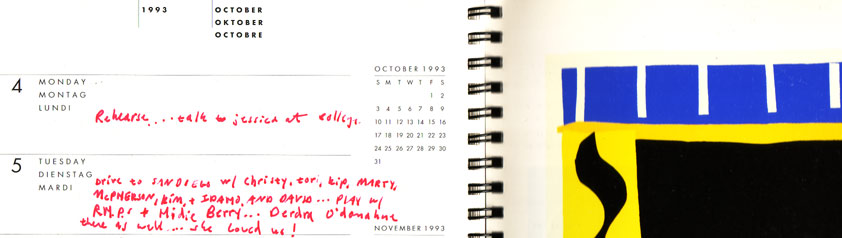 1993
OCTOBER
OKTOBER
OCTOBRE
4
MONDAY
MONTAG
LUNDI
Rehearse... talk to jessica at college.
5
TUESDAY
DIENSTAG
MARDI
Drive to SAN DIEGO w/ Christy, tori, kip, MARTY,
McPHERSON, kim, + IDAHO, AND DAVID... PLAY w/
R.H.P.S + Midie Berry... Derdra O'donahue
there as well... she loved us!
OCTOBER 1993
S M T W T F S
1 2
3 4 5 6 7 8 9
10 11 12 13 14 15 16
17 18 19 20 21 22 23
24 25 26 27 28 29 30
31
NOVEMBER 1993